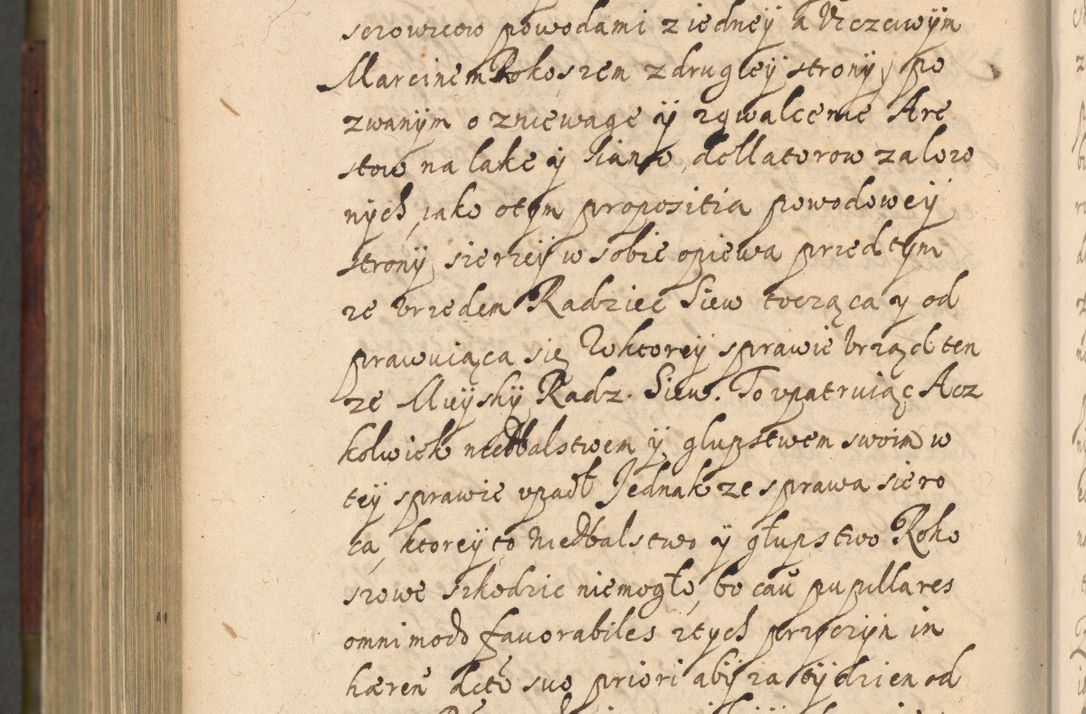 serowicow powodami z iedney a Vczciwym
Marcinem Rokoszem z drugiey strony po
zwanym o zniewage y zgwalcenie Are
stow na lake y siano dellatorow zalozo
nych, jako otym propositia powodowey
strony sierzey w sobie opiewa przed tym
ze vrzedem Radziec Siew tocząca y od
prawuiąca się Wktorey sprawie vrząd ten
ze Mieyski Radz. Siew. To vpatruiąc Acz
kolwiek niedbalstwem y glupstwem swoim w
tey sprawie vpadł Jednak ze sprawa siero
ca, ktorey to niedbalstwo y głupstwo Roko
szowe szkodzic niemogło, bo cau pupillares
omnimodo favorabiles z tych przyczyn in
hæren dcto suo priori aby za tydzien od